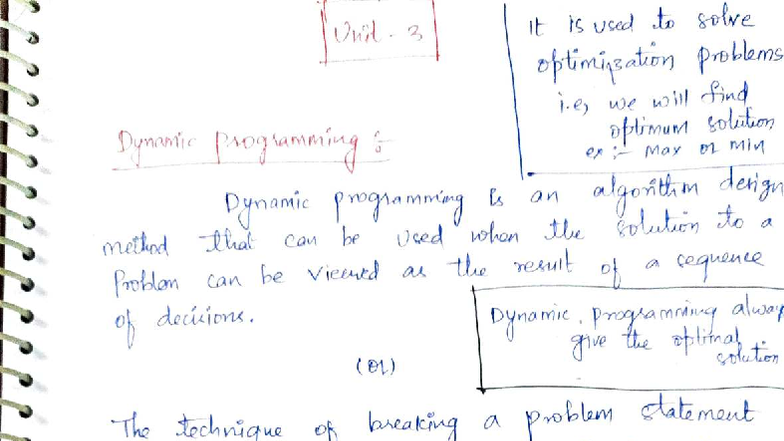 Unit - 3
It is used to solve
optimization problems
i.e, we will find
optimum solution
ex :- Max or min
Dynamic programming :-
Dynamic programming is an algorithm design
method that can be used when the solution to a
Problem can be viewed as the result of a sequence
of decisions.
Dynamic programming alway
give the optimal
solution
(or)
The technique of breaking a problem statement